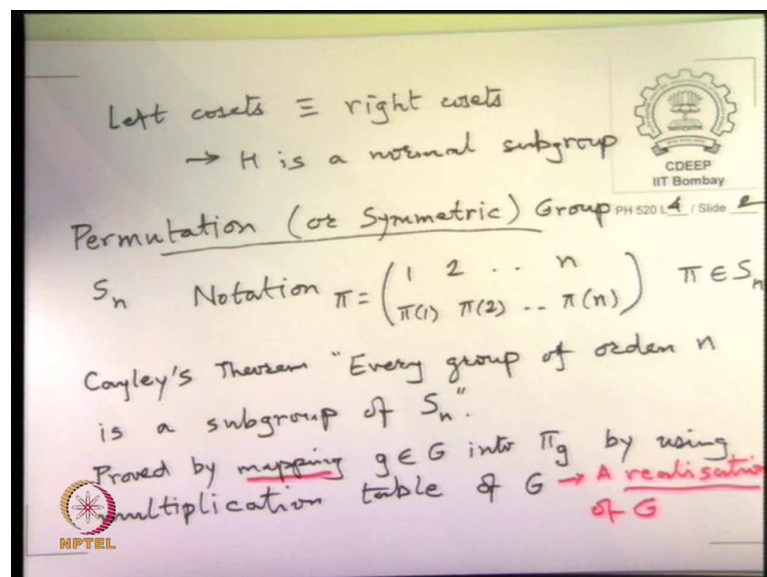 Left cosets ≡ right cosets
→ H is a normal subgroup
CDEEP
IIT Bombay
Permutation (or Symmetric) Group
PH 520 L 4 / Slide 2
Sn Notation π = ( 1 2 .. n π ∈ Sn
π(1) π(2) .. π(n) )
Cayley's Theorem "Every group of order n
is a subgroup of Sn".
Proved by mapping g ∈ G into πg by using
multiplication table of G → A realisation
of G
NPTEL